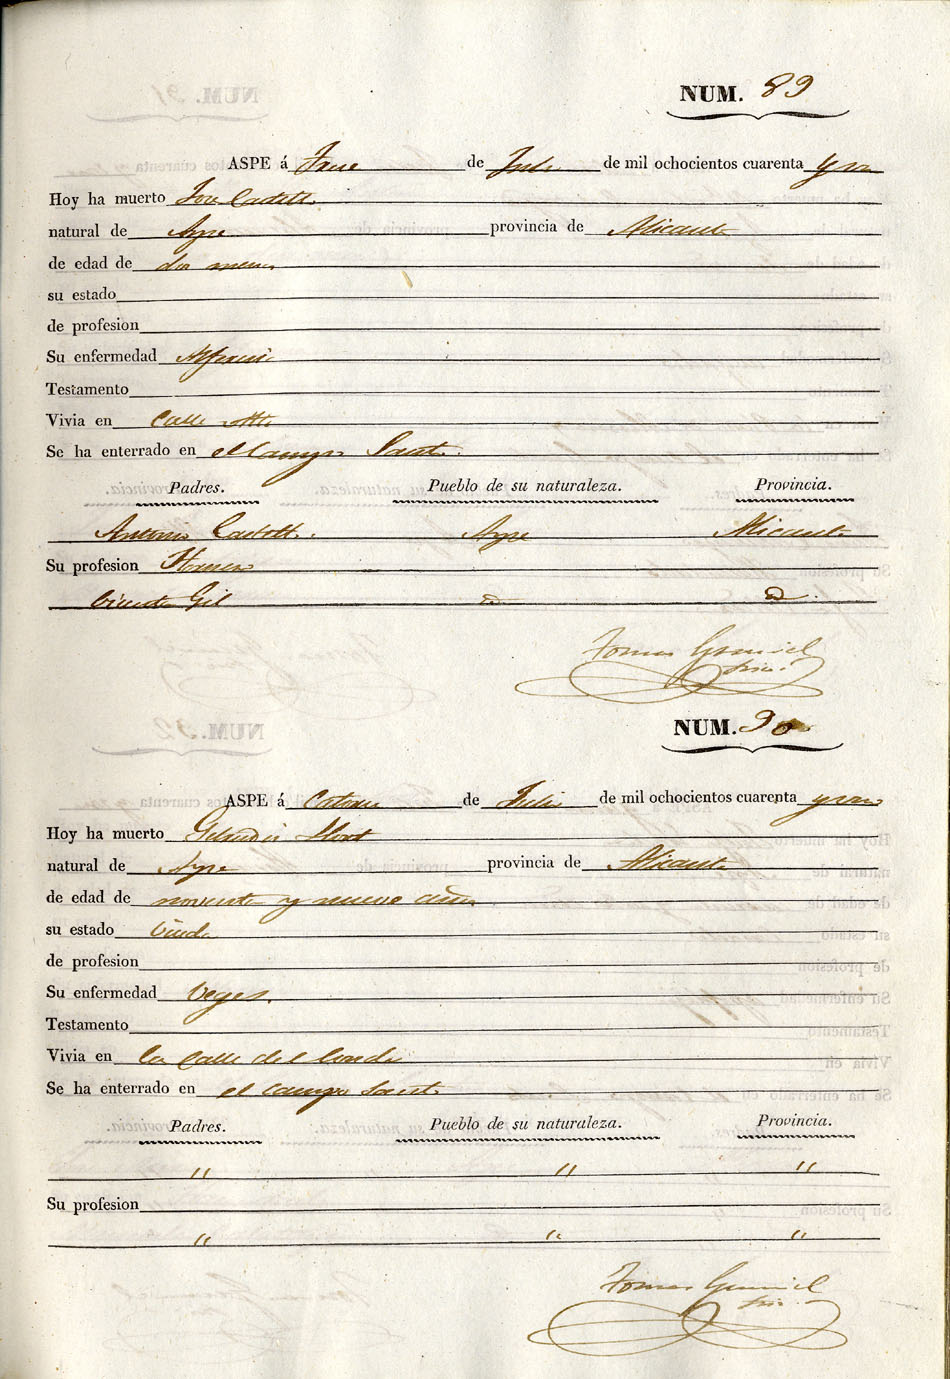 NUM. 89
ASPE á Trece de Julio de mil ochocientos cuarenta y
Hoy ha muerto Jose Castello
natural de Aspe provincia de Alicante
de edad de dos meses
su estado
de profesion
Su enfermedad Alferecia
Testamento
Vivia en Calle
Se ha enterrado en el Campo Santo
Padres. Pueblo de su naturaleza. Provincia.
Antonio Castello. Aspe Alicante
Su profesion
Vicenta Gil
Tomas
NUM. 90
ASPE á Catorce de Julio de mil ochocientos cuarenta y
Hoy ha muerto
natural de Aspe provincia de Alicante
de edad de noventa y nueve años
su estado Viuda
de profesion
Su enfermedad Veges.
Testamento
Vivia en La Calle del Conde
Se ha enterrado en el Campo Santo
Padres. Pueblo de su naturaleza. Provincia.
" " "
Su profesion
" " "
Tomas